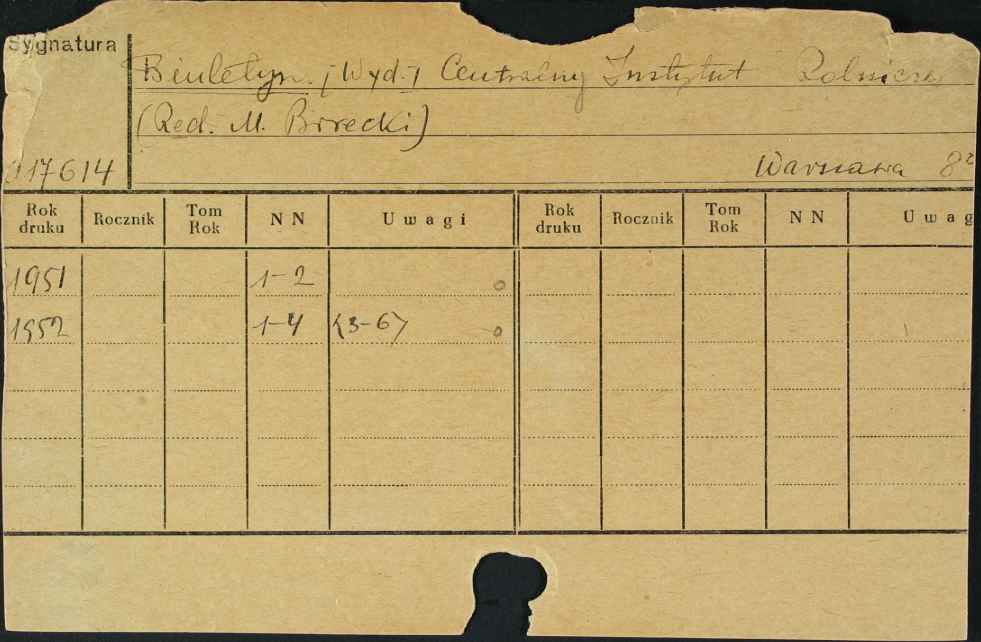 Sygnatura
Biuletyn. [Wyd.] Centralny Instytut Rolniczy
(Red. M. Birecki)
117614
Warszawa 8º
Rok druku Rocznik Tom Rok NN Uwagi Rok druku Rocznik Tom Rok NN Uwag
1951 1-2 o
1952 1-4 <3-6> o